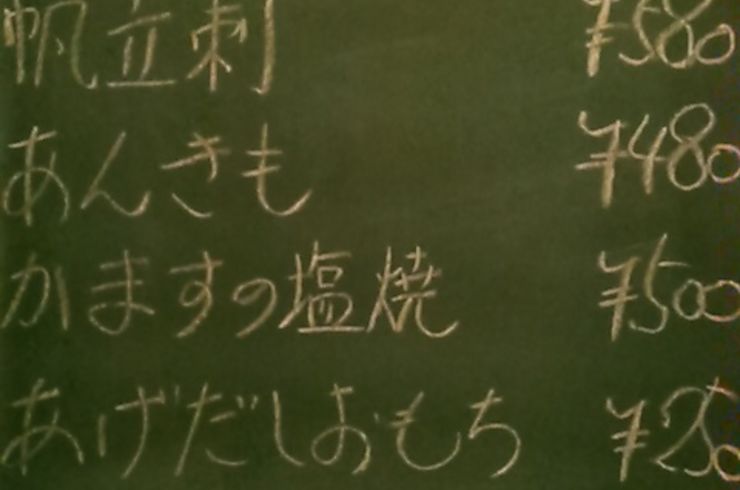 帆立刺 ¥580
あんきも ¥480
かますの塩焼 ¥500
あげだしおもち ¥250